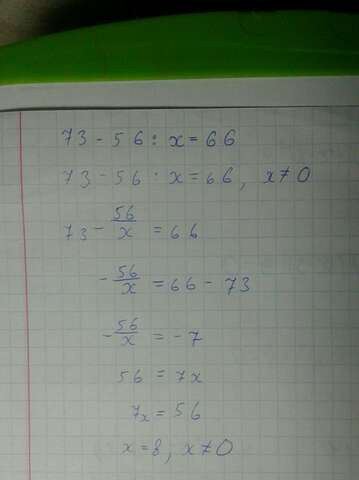 73 - 56 : x = 66
73 - 56 : x = 66, x ≠ 0
73 - 56/x = 66
- 56/x = 66 - 73
- 56/x = - 7
56 = 7x
7x = 56
x = 8, x ≠ 0